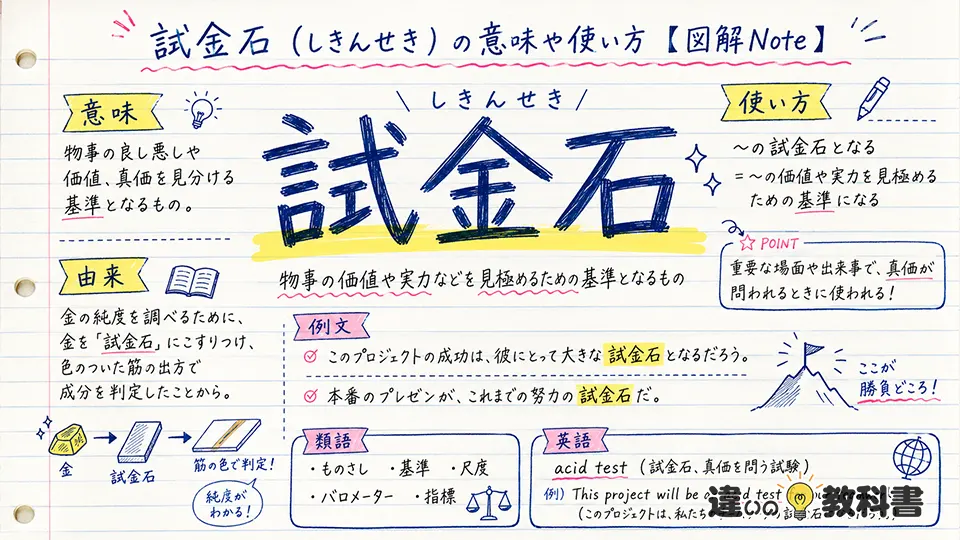 試金石（しきんせき）の意味や使い方【図解Note】
意味
物事の良し悪しや
価値、真価を見分ける
基準となるもの。
由来
金の純度を調べるために、
金を「試金石」にこすりつけ、
色のついた筋の出方で
成分を判定したことから。
金
試金石
筋の色で判定!
純度が
わかる!
しきんせき
試金石
物事の価値や実力などを見極めるための基準となるもの
例文
このプロジェクトの成功は、彼にとって大きな試金石となるだろう。
本番のプレゼンが、これまでの努力の試金石だ。
類語
・ものさし ・基準 ・尺度
・バロメーター ・指標
使い方
〜の試金石となる
=〜の価値や実力を見極める
ための基準になる
POINT
重要な場面や出来事で、真価が
問われるときに使われる!
ここが
勝負どころ!
英語
acid test（試金石、真価を問う試験）
例) This project will be test
(このプロジェクトは、私たち
違いの教科書